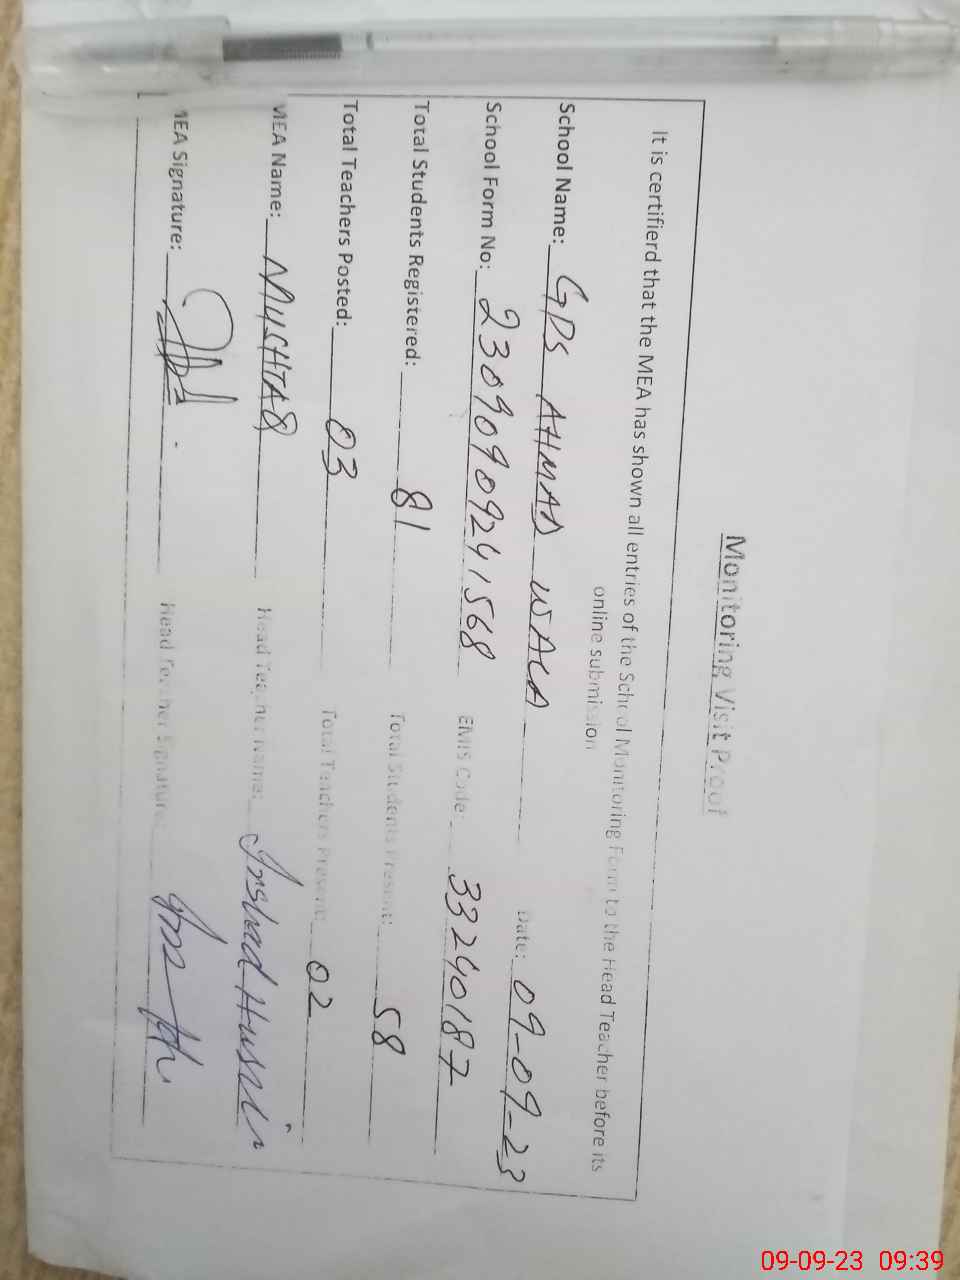 Monitoring Visit Proof
It is certifierd that the MEA has shown all entries of the School Monitoring Form to the Head Teacher before its
online submission
School Name: GPS AHMAD WALA Date: 09-09-23
School Form No: 23090909241568 EMIS Code: 33240187
Total Students Registered: 81 Total Students Present: 58
Total Teachers Posted: 03 Total Teachers Present: 02
MEA Name: MUSHTAQ Head Teacher Name: Irshad Hussain
MEA Signature: Head Teacher Signature:
09-09-23 09:39